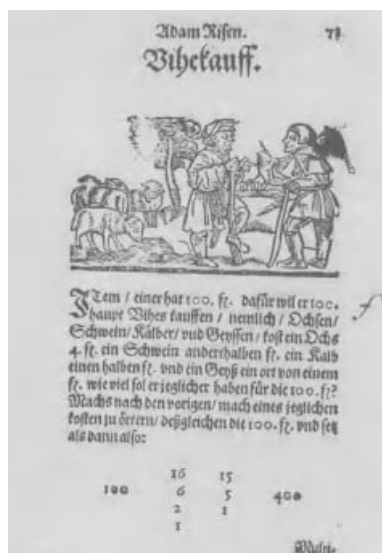 Adam Risen. 71
Vihekauff.
ITem / einer hat 100. fl. dafür wil er 100.
haupt Vihes kauffen / nemlich / Ochsen/
Schwein/ Kälber/ vnd Geyssen / kost ein Ochs
4. fl. ein Schwein anderthalben fl. ein Kalb
einen halben fl. vnd ein Geyß ein ort von einem
fl. wie viel sol er jeglicher haben für die 100. fl?
Machs nach den vorigen/ mach eines jeglichen
kosten zu örtern/ deßgleichen die 100. fl. vnd setz
als dann also:
16 15
100 6 5 400
2 1
1
Multi-